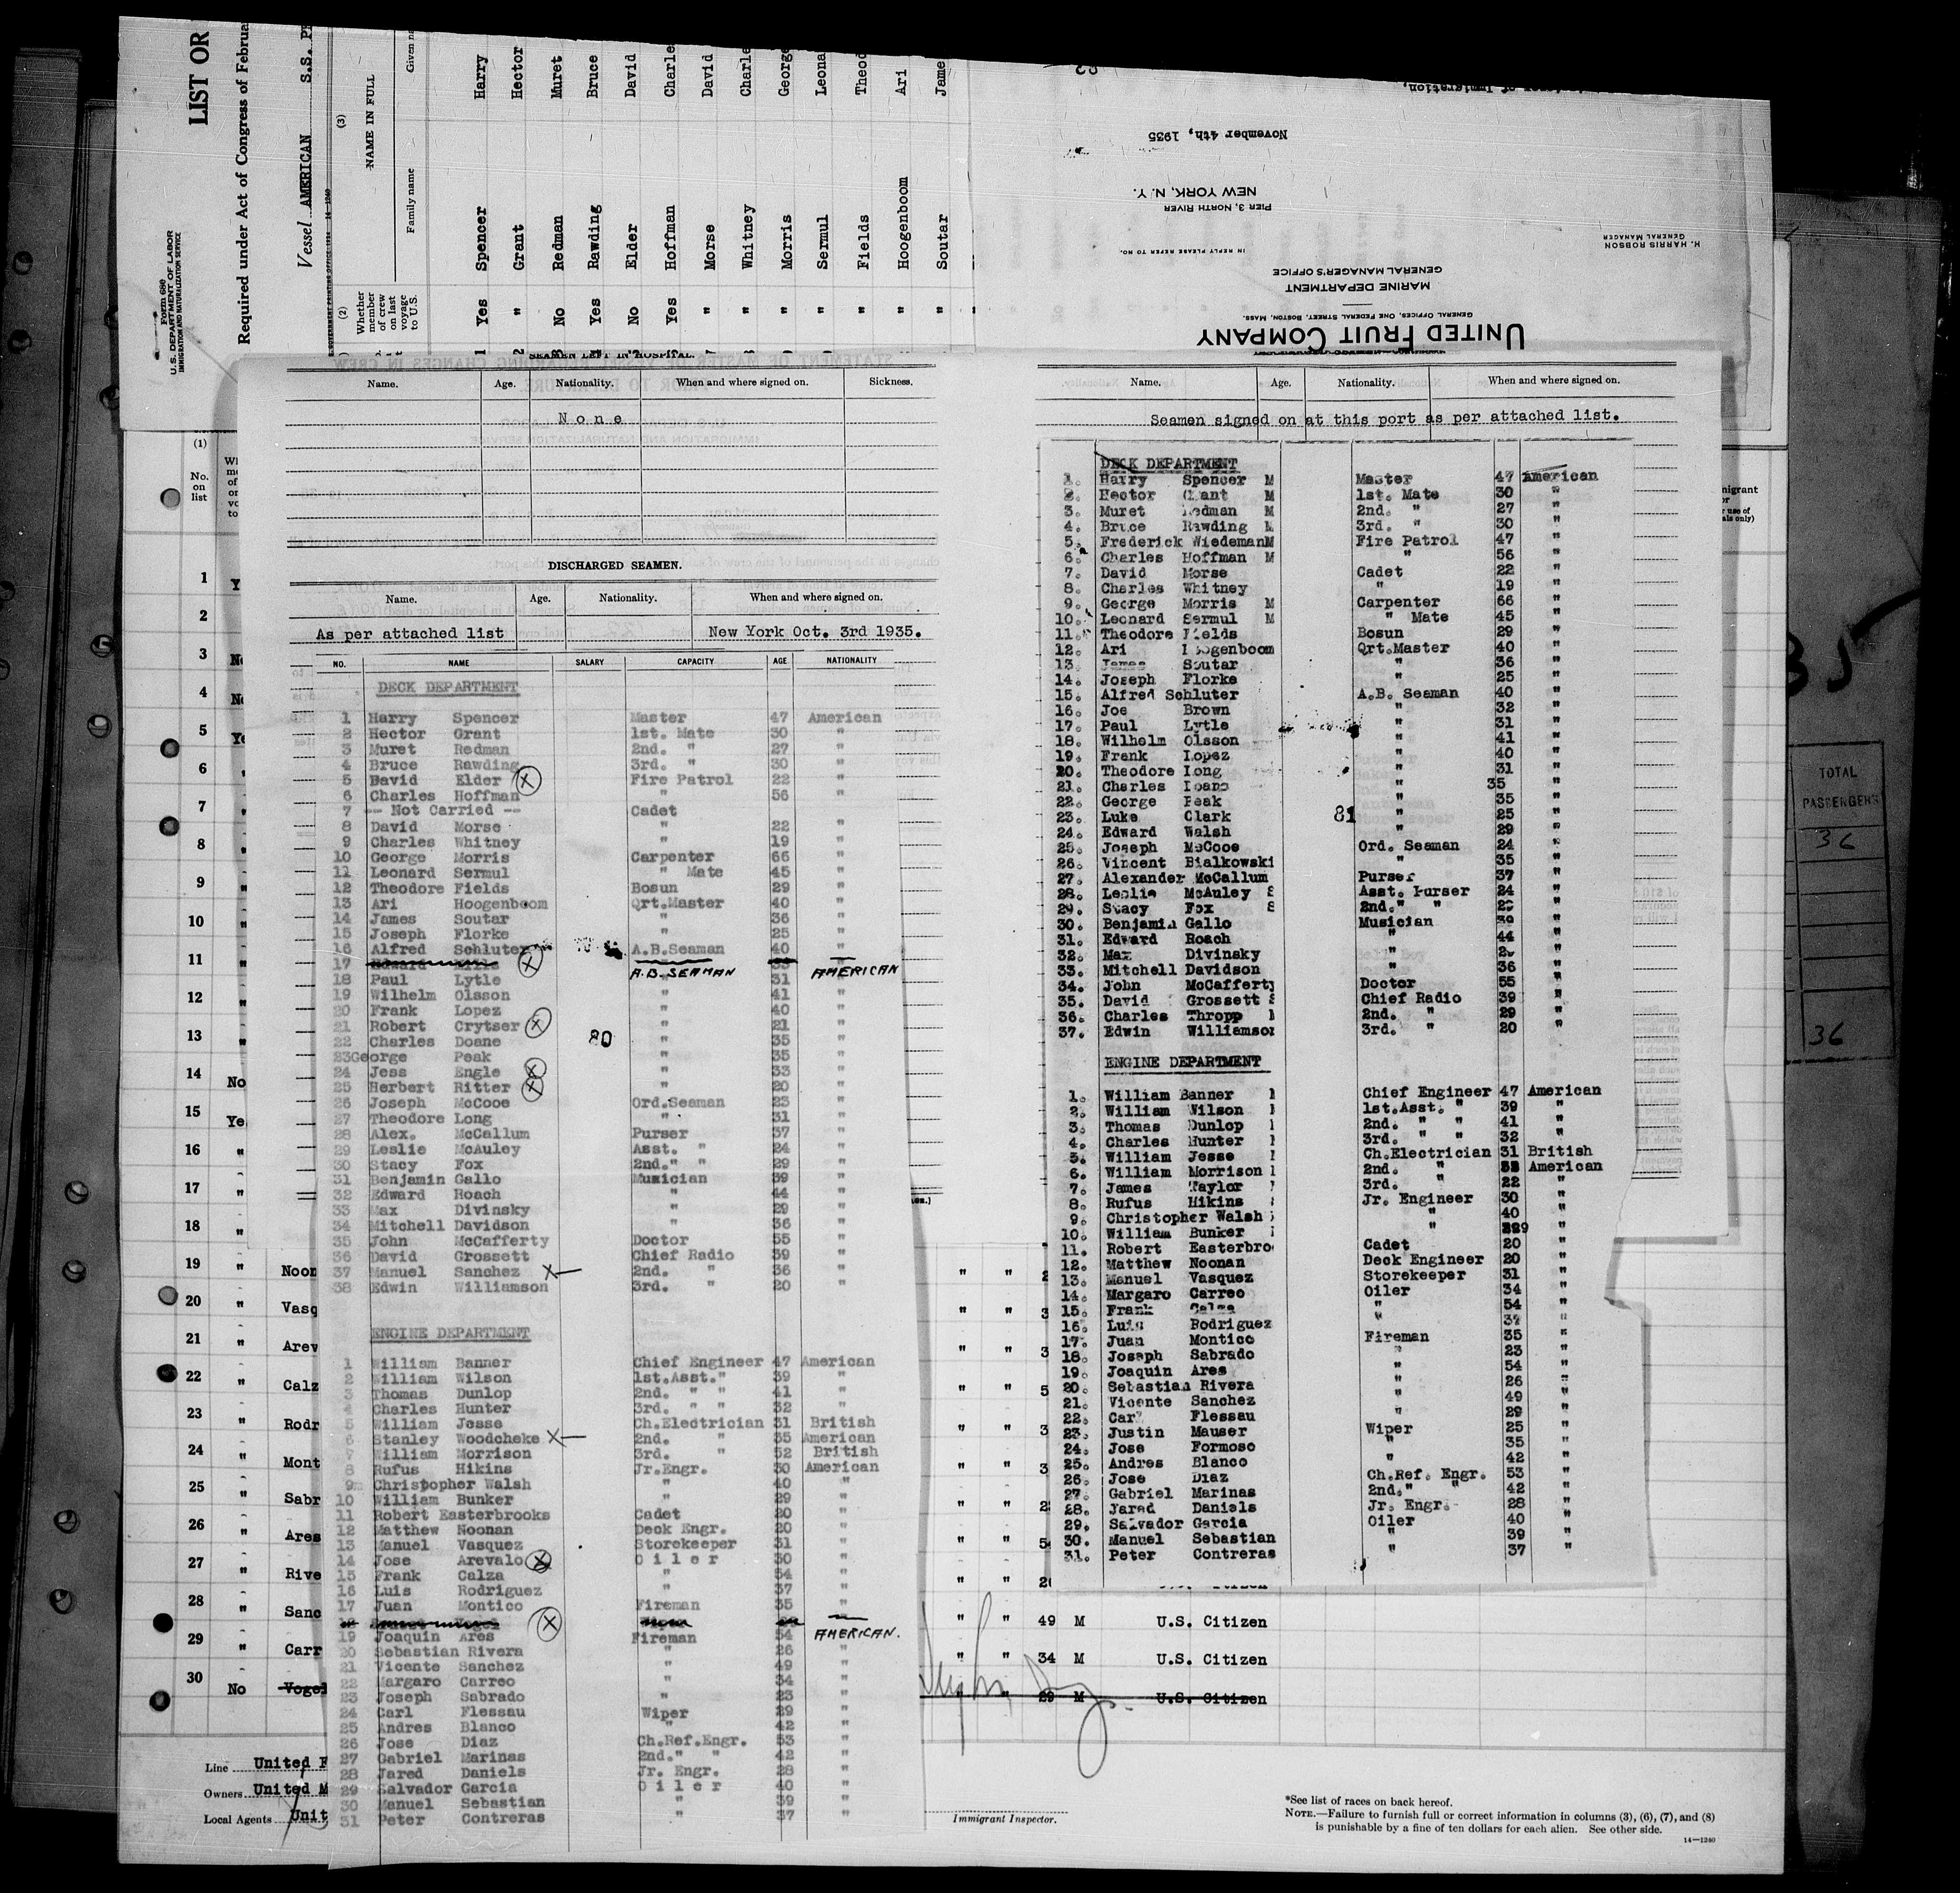 Form 680
U.S. DEPARTMENT OF LABOR
IMMIGRATION AND NATURALIZATION SERVICE
LIST OR
Required under Act of Congress of Februa
Vessel AMERICAN S.S. P
(2)
Whether member of crew on last voyage to U.S.
(3)
NAME IN FULL
Family name
Given na
1 Yes Spencer Harry
2 " Grant Hector
No Redman Muret
Yes Rawding Bruce
No Elder David
Yes Hoffman Charle
" Morse David
" Whitney Charle
" Morris George
" Sermul Leona
" Fields Theod
" Hoogenboom Ari
" Soutar Jame
November 4th, 1935
UNITED FRUIT COMPANY
GENERAL OFFICES, ONE FEDERAL STREET, BOSTON, MASS.
MARINE DEPARTMENT
GENERAL MANAGER'S OFFICE
H. HARRIS ROBSON
GENERAL MANAGER
IN REPLY PLEASE REFER TO NO.
PIER 3, NORTH RIVER
NEW YORK, N. Y.
SEAMEN LEFT IN HOSPITAL.
Name. Age. Nationality. When and where signed on. Sickness.
None
DISCHARGED SEAMEN.
Name. Age. Nationality. When and where signed on.
As per attached list New York Oct. 3rd 1935.
NO. NAME SALARY CAPACITY AGE NATIONALITY
DECK DEPARTMENT
1 Harry Spencer Master 47 American
2 Hector Grant 1st. Mate 30 "
3 Muret Redman 2nd. " 27 "
4 Bruce Rawding 3rd. " 30 "
5 David Elder X Fire Patrol 22 "
6 Charles Hoffman " 56 "
7 -- Not Carried -- Cadet
8 David Morse " 22 "
9 Charles Whitney " 19 "
10 George Morris Carpenter 66 "
11 Leonard Sermul " Mate 45 "
12 Theodore Fields Bosun 29 "
13 Ari Hoogenboom Qrt.Master 40 "
14 James Soutar " 36 "
15 Joseph Florke " 25 "
16 Alfred Schluter A.B.Seaman 40 "
17 X A.B. SEAMAN AMERICAN
18 Paul Lytle " 31 "
19 Wilhelm Olsson " 41 "
20 Frank Lopez " 40 "
21 Robert Crytser X " 21 "
22 Charles Doane 80 " 35 "
23George Peak " 35 "
24 Jess Engle X " 33 "
25 Herbert Ritter X " 20 "
26 Joseph McCooe Ord.Seaman 23 "
27 Theodore Long " 31 "
28 Alex. McCallum Purser 37 "
29 Leslie McAuley Asst. " 24 "
30 Stacy Fox 2nd." " 29 "
31 Benjamin Gallo Musician 39 "
32 Edward Roach " 44 "
33 Max Divinsky " 29 "
34 Mitchell Davidson " 36 "
35 John McCafferty Doctor 55 "
36 David Grossett Chief Radio 39 "
37 Manuel Sanchez X 2nd. " 36 "
38 Edwin Williamson 3rd. " 20 "
ENGINE DEPARTMENT
1 William Banner Chief Engineer 47 American
2 William Wilson 1st.Asst." 39 "
3 Thomas Dunlop 2nd. " " 41 "
4 Charles Hunter 3rd. " " 32 "
5 William Jesse Ch.Electrician 31 British
6 Stanley Woodcheke X 2nd. " 35 American
7 William Morrison 3rd. " 52 British
8 Rufus Hikins Jr.Engr. 30 American
9 Christopher Walsh " 40 "
10 William Bunker " 29 "
11 Robert Easterbrooks Cadet 20 "
12 Matthew Noonan Deck Engr. 20 "
13 Manuel Vasquez Storekeeper 31 "
14 Jose Arevalo X Oiler 30 "
15 Frank Calza " 54 "
16 Luis Rodriguez " 37 "
17 Juan Montico Fireman 35 "
X
19 Joaquin Ares Fireman 54 AMERICAN.
20 Sebastian Rivera " 26 "
21 Vicente Sanchez " 49 "
22 Margaro Carreo " 34 "
23 Joseph Sabrado " 23 "
24 Carl Flessau Wiper 29 "
25 Andres Blanco " 42 "
26 Jose Diaz Ch.Ref.Engr. 53 "
27 Gabriel Marinas 2nd." " 42 "
28 Jared Daniels Jr. Engr. 28 "
29 Salvador Garcia Oiler 40 "
30 Manuel Sebastian " 39 "
31 Peter Contreras " 37 "
Name. Age. Nationality. When and where signed on.
Seamen signed on at this port as per attached list.
DECK DEPARTMENT
1. Harry Spencer M Master 47 American
2. Hector Grant M 1st. Mate 30 "
3. Muret Redman M 2nd. " 27 "
4. Bruce Rawding M 3rd. " 30 "
5. Frederick WiedemanM Fire Patrol 47 "
6. Charles Hoffman M " 56 "
7. David Morse Cadet 22 "
8. Charles Whitney " 19 "
9. George Morris M Carpenter 66 "
10. Leonard Sermul M " Mate 45 "
11. Theodore Fields Bosun 29 "
12. Ari Hoogenboom Qrt.Master 40 "
13. James Soutar " 36 "
14. Joseph Florke " 25 "
15. Alfred Schluter A.B. Seaman 40 "
16. Joe Brown " 32 "
17. Paul Lytle " 31 "
18. Wilhelm Olsson " 41 "
19. Frank Lopez " 40 "
20. Theodore Long " 31 "
21. Charles Doane " 35 "
22. George Peak " 35 "
23. Luke Clark 81 " 25 "
24. Edward Walsh " 29 "
25. Joseph McCooe Ord. Seaman 24 "
26. Vincent Bialkowski " 35 "
27. Alexander McCallum Purser 37 "
28. Leslie McAuley Asst. Purser 24 "
29. Stacy Fox 2nd." " 29 "
30. Benjamin Gallo Musician 39 "
31. Edward Roach " 44 "
32. Max Divinsky " 29 "
33. Mitchell Davidson " 36 "
34. John McCafferty Doctor 55 "
35. David Grossett Chief Radio 39 "
36. Charles Thropp 2nd. " 29 "
37. Edwin Williamson 3rd. " 20 "
ENGINE DEPARTMENT
1. William Banner Chief Engineer 47 American
2. William Wilson 1st.Asst. " 39 "
3. Thomas Dunlop 2nd. " " 41 "
4. Charles Hunter 3rd. " " 32 "
5. William Jesse Ch.Electrician 31 British
6. William Morrison 2nd. " American
7. James Taylor 3rd. " 22 "
8. Rufus Hikins Jr. Engineer 30 "
9. Christopher Walsh " 40 "
10. William Bunker " "
11. Robert Easterbro Cadet 20 "
12. Matthew Noonan Deck Engineer 20 "
13. Manuel Vasquez Storekeeper 31 "
14. Margaro Carreo Oiler 34 "
15. Frank Calza " 54 "
16. Luis Rodriguez " 37 "
17. Juan Montico Fireman 35 "
18. Joseph Sabrado " 23 "
19. Joaquin Ares " 54 "
20. Sebastian Rivera " 26 "
21. Vicente Sanchez " 49 "
22. Carl Flessau " 29 "
23. Justin Mauser Wiper 25 "
24. Jose Formoso " 35 "
25. Andres Blanco " 42 "
26. Jose Diaz Ch.Ref. Engr. 53 "
27. Gabriel Marinas 2nd." " 42 "
28. Jared Daniels Jr. Engr. 28 "
29. Salvador Garcia Oiler 40 "
30. Manuel Sebastian " 39 "
31. Peter Contreras " 37 "
(1)
No. on list
1 Y
2
3 No
4 No
5 Ye
6
7 "
8 "
9 "
10 "
11 "
12 "
13 "
14 No
15 Ye
16 "
17 "
18 "
19 " Noon
20 " Vasq
21 " Arev
22 " Calz
23 " Rodr
24 " Mont
25 " Sabr
26 " Ares
27 " Rive
28 " Sanc
29 " Carr
30 No Vogel
" " 49 M U.S. Citizen
" " 34 M U.S. Citizen
" " 29 M U.S. Citizen
Line United F
Owners United M
Local Agents Unit
Immigrant Inspector.
*See list of races on back hereof.
NOTE.—Failure to furnish full or correct information in columns (3), (6), (7), and (8)
is punishable by a fine of ten dollars for each alien. See other side.
14—1240
TOTAL
PASSENGERS
36
36